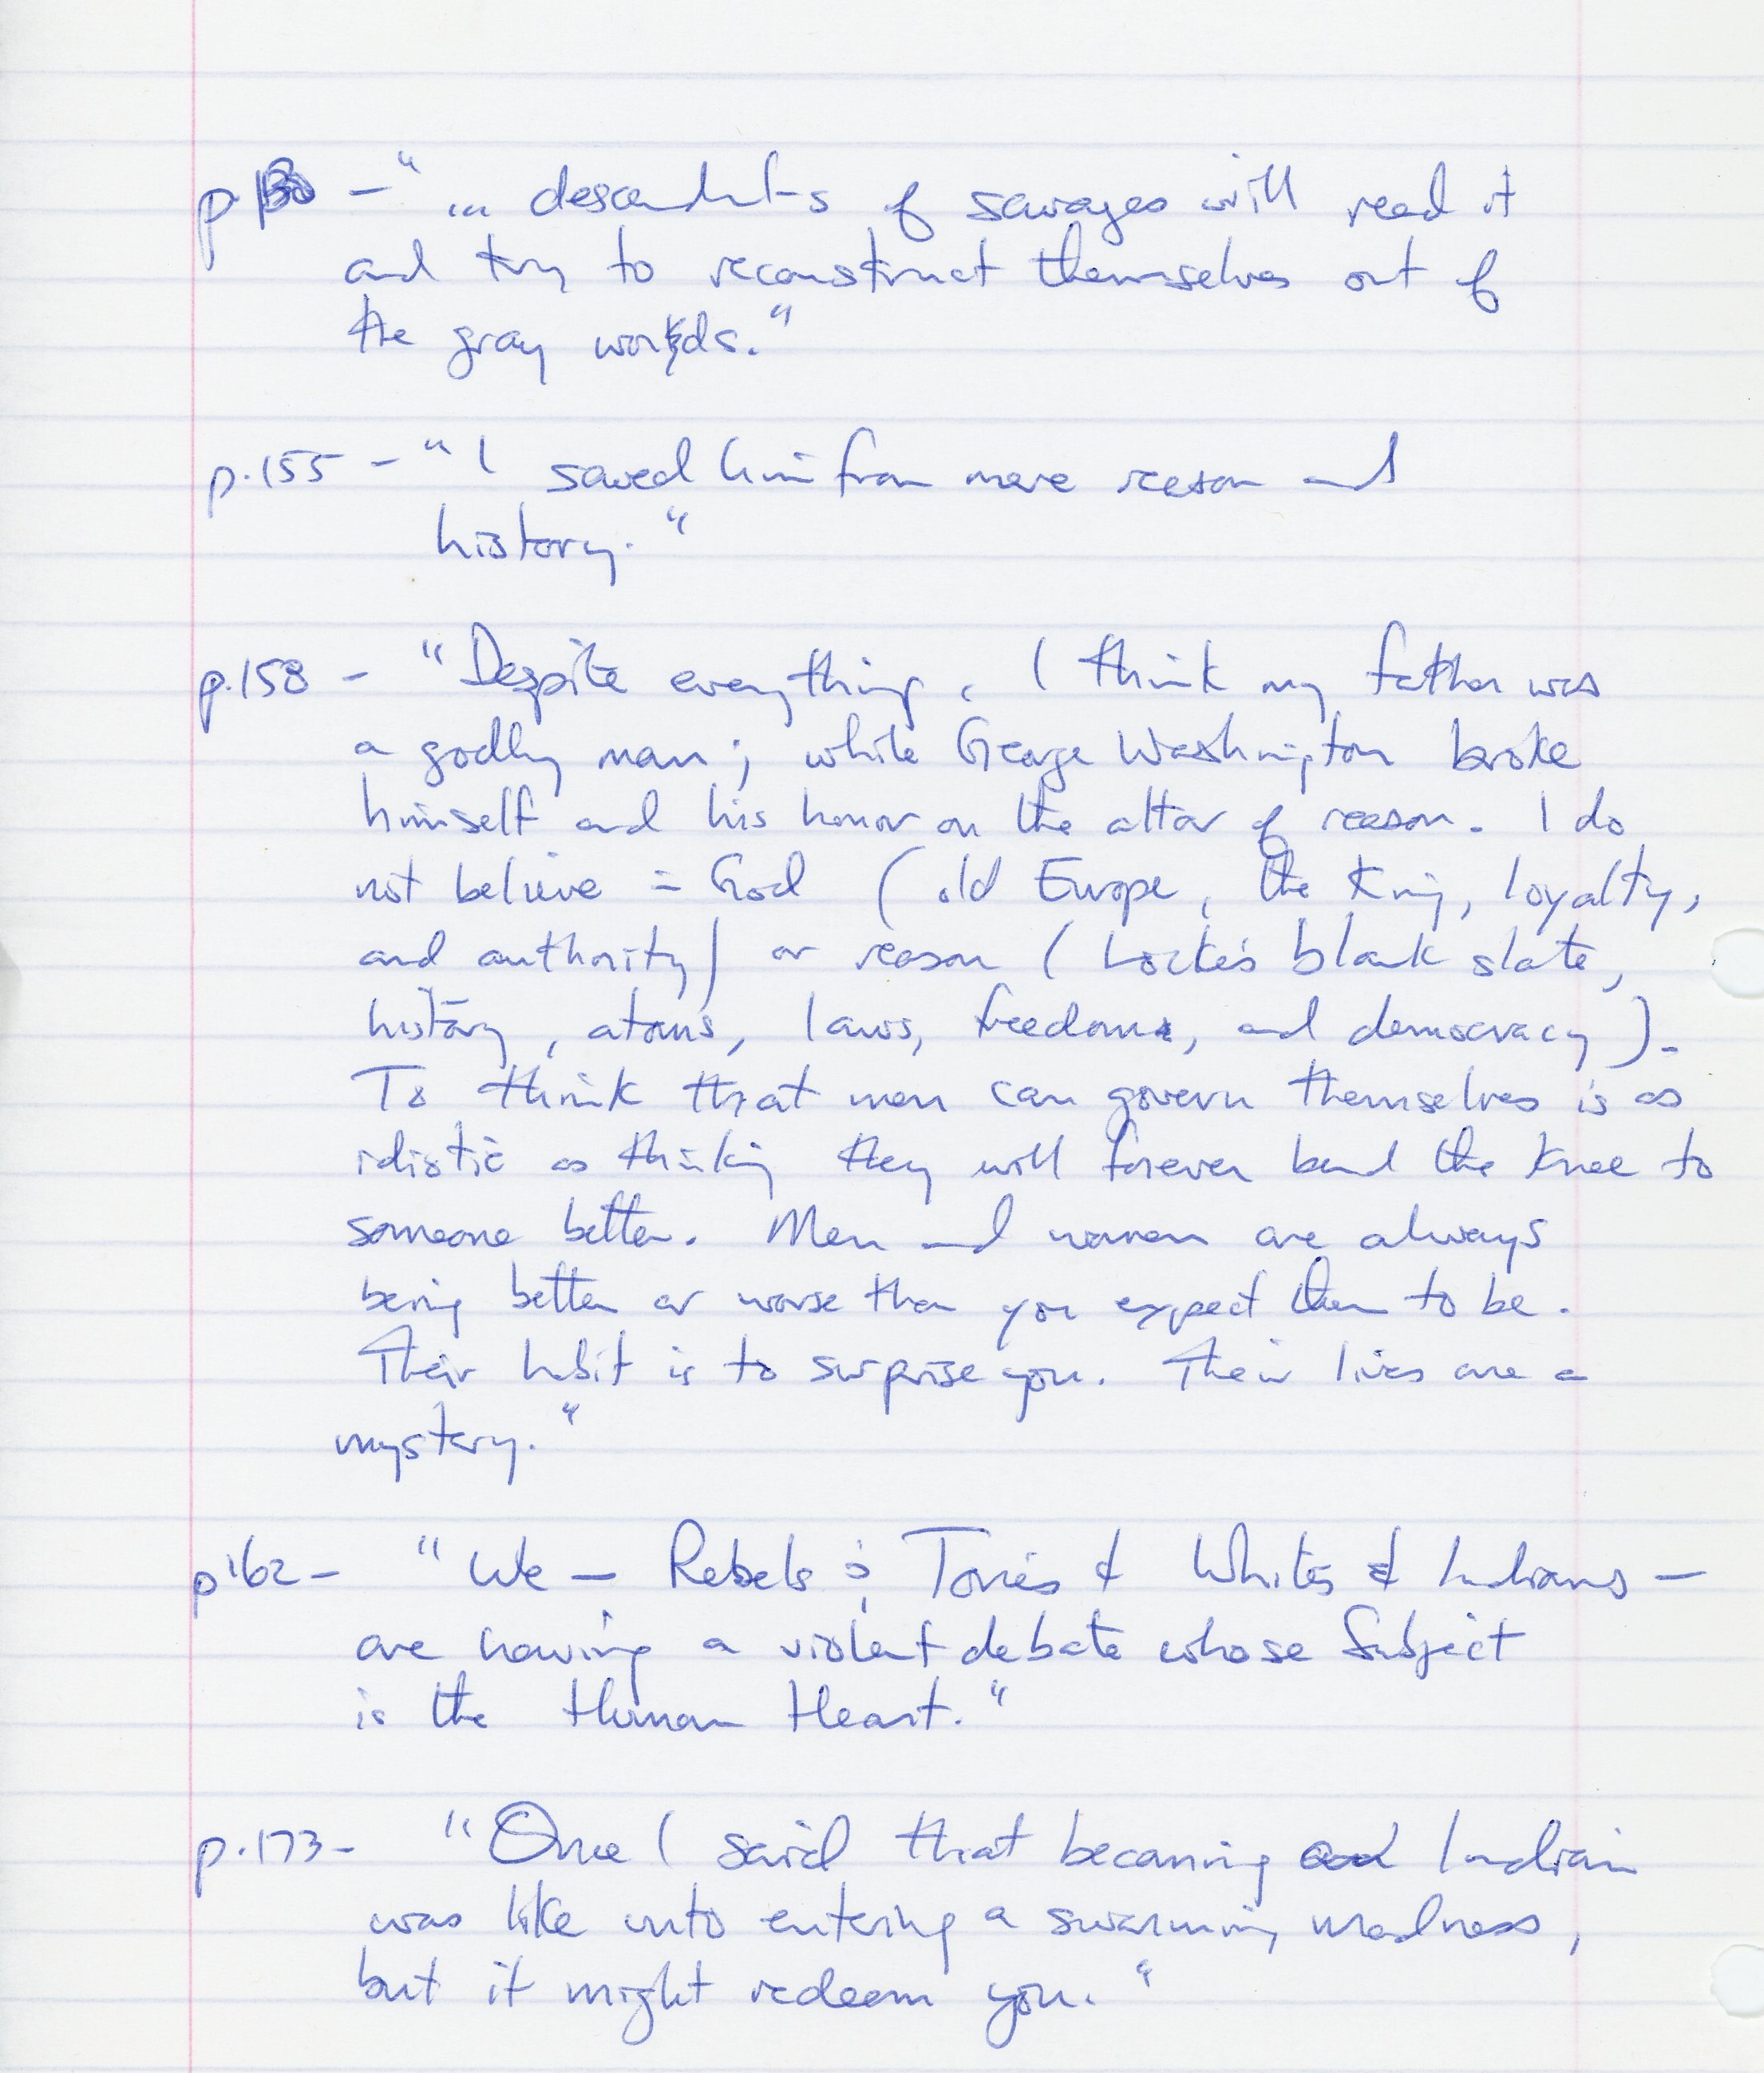 p 130 - "... descendants of savages will read it
and try to reconstruct themselves out of
the gray words."
p.155 - "I saved him from mere reason and
history."
p.158 - "Despite everything, I think my father was
a godly man; while George Washington broke
himself and his honor on the altar of reason. I do
not believe in God (old Europe, the King, loyalty,
and authority) or reason (Locke's blank slate,
history, atoms, laws, freedom, and democracy).
To think that men can govern themselves is as
idiotic as thinking they will forever bend the knee to
someone better. Men and women are always
being better or worse than you expect them to be.
Their habit is to surprise you. Their lives are a
mystery."
p 162 - "We — Rebels & Tories & Whites & Indians —
are having a violent debate whose Subject
is the Human Heart."
p.173 - "Once I said that becoming Indian
was like unto entering a swarming madness,
but it might redeem you."